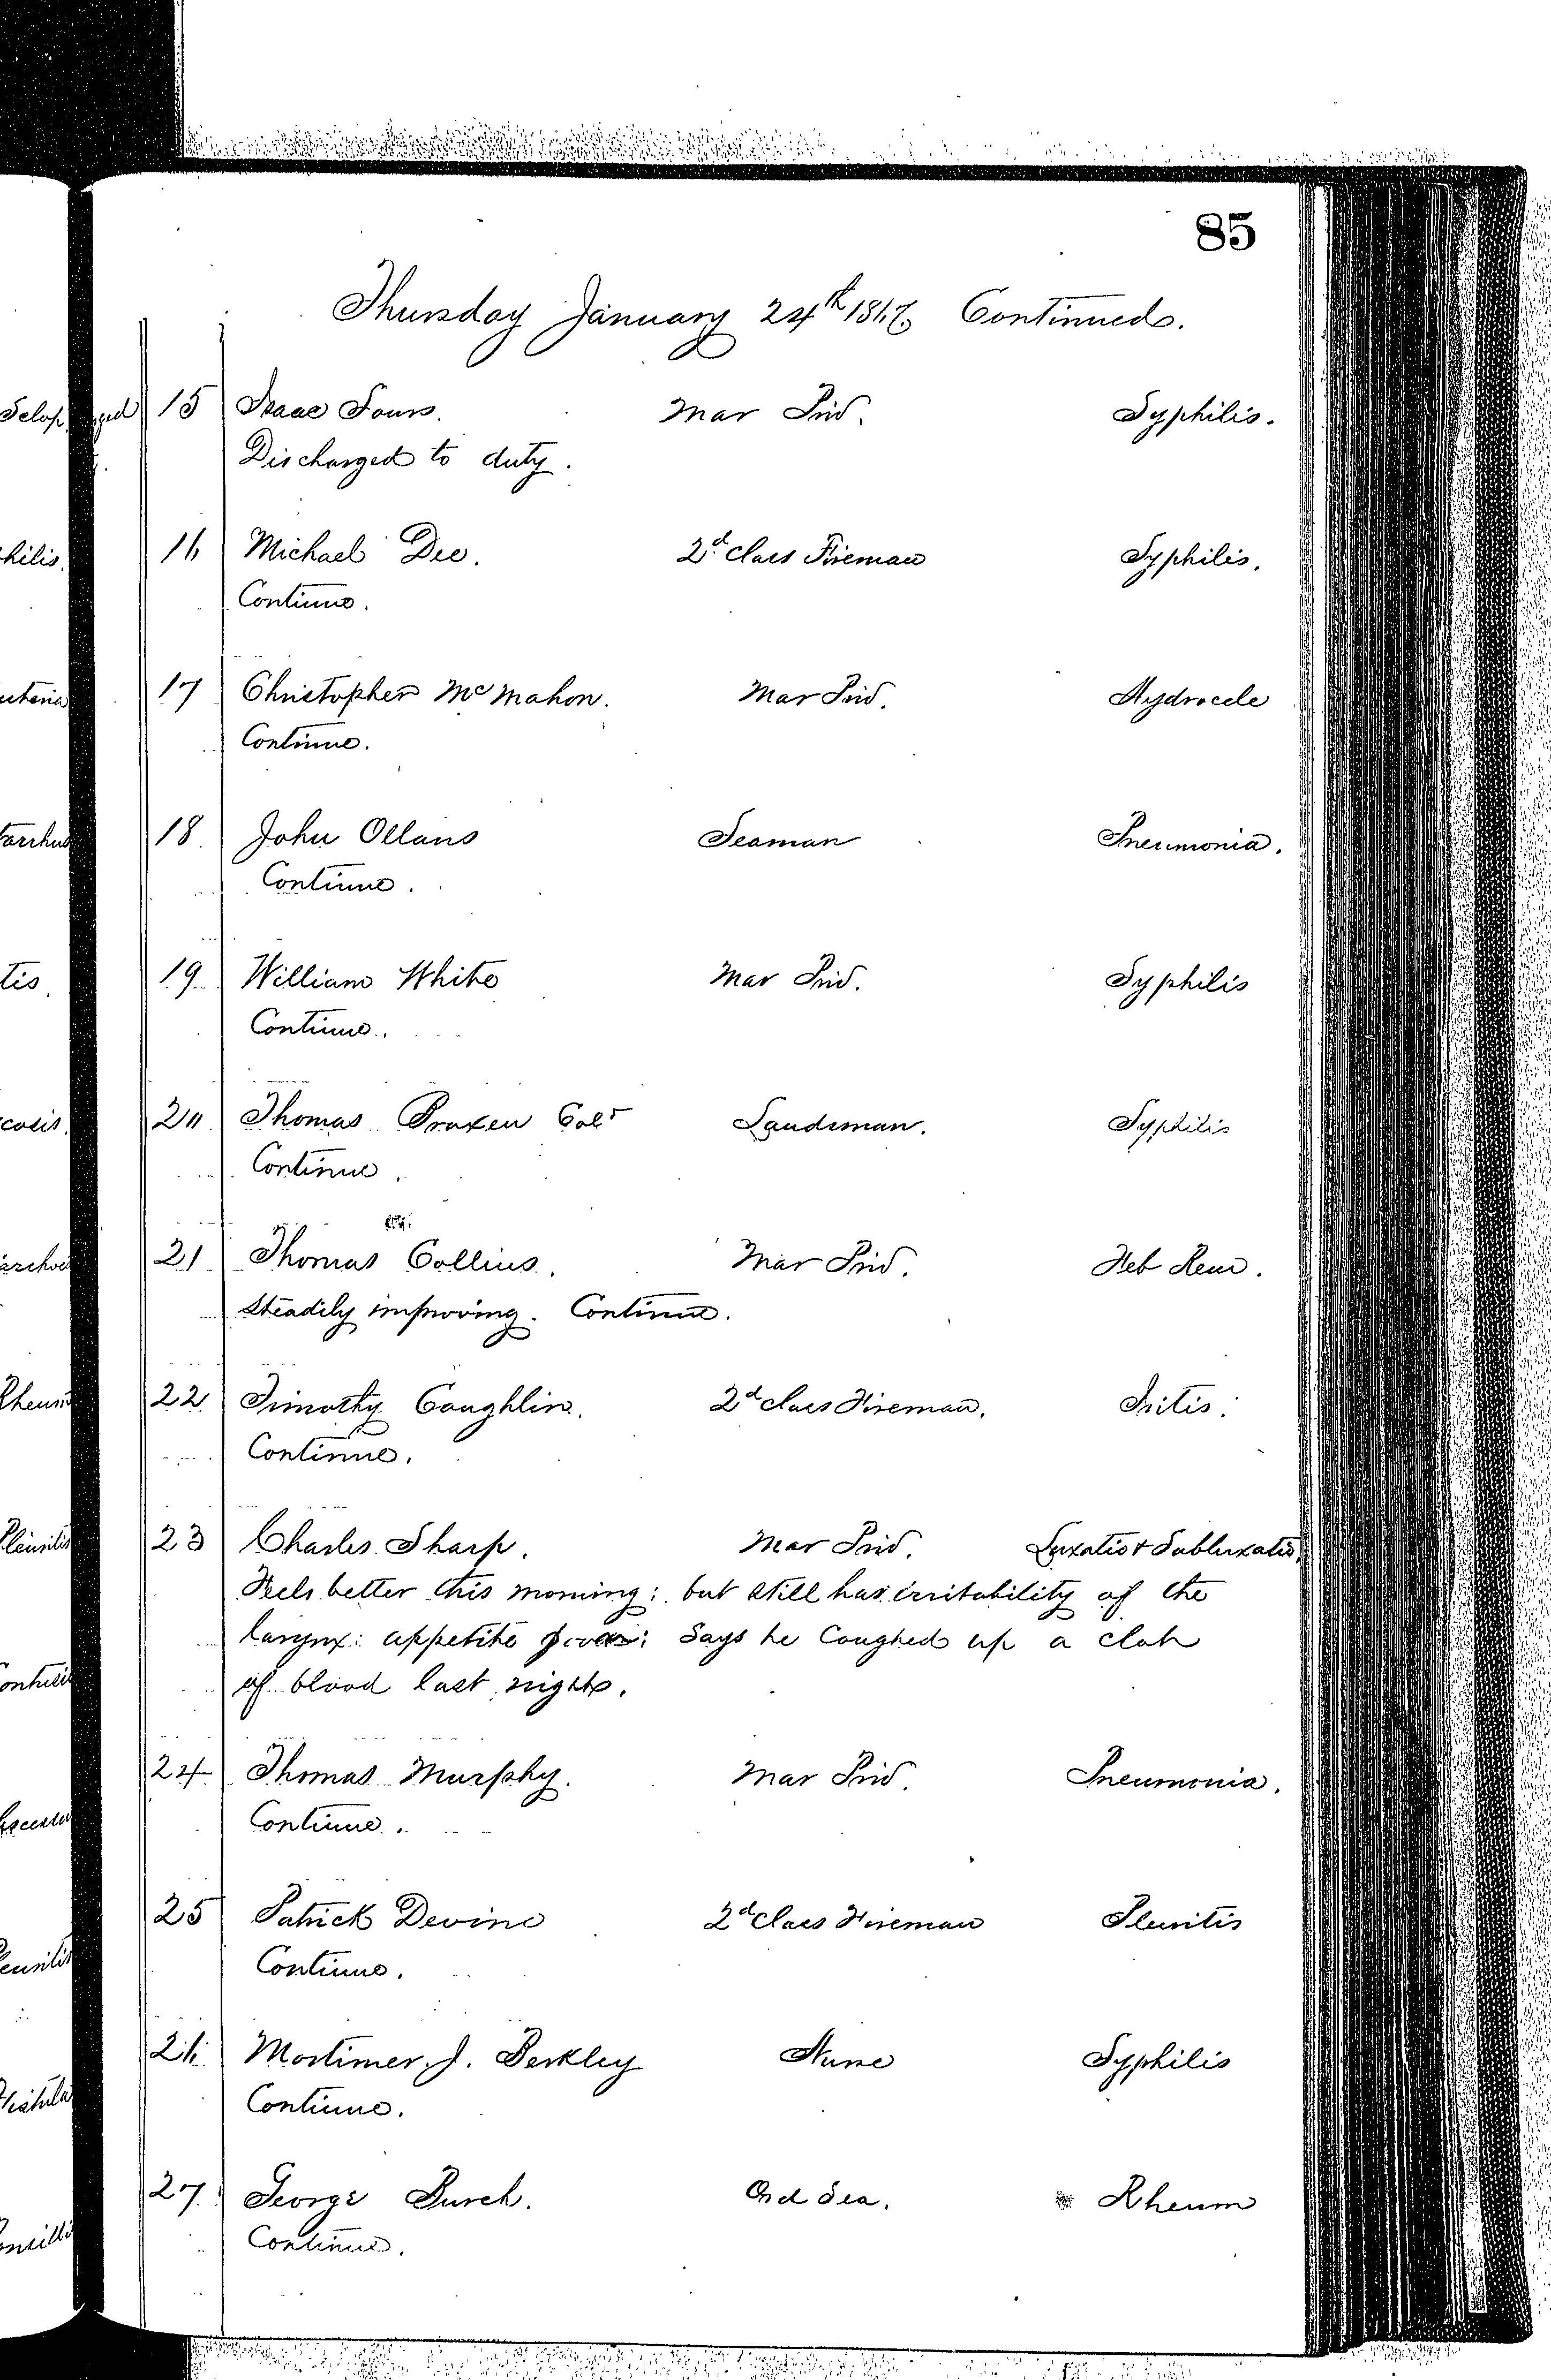 85
Thursday January 24th 1867. Continued.
15 Isaac Sours. Mar Priv. Syphilis.
Discharged to duty.
16 Michael Dee. 2d Class Fireman Syphilis.
Continue.
17 Christopher McMahon. Mar Priv. Hydrocele
Continue.
18 John Ollans Seaman Pneumonia.
Continue.
19 William White Mar Priv. Syphilis
Continue.
20 Thomas Col'd Landsman. Syphilis
Continue.
21 Thomas Collins. Mar Priv. Feb Rem.
Steadily improving. Continue.
22 Timothy Coughlin. 2d Class Fireman. Iritis.
Continue.
23 Charles Sharp. Mar Priv. Luxatio & Subluxatio.
Feels better this morning: but still has irritability of the
larynx: appetite poor: Says he Coughed up a clot
of blood last night.
24 Thomas Murphy. Mar Priv. Pneumonia.
Continue.
25 Patrick Devine 2d Class Fireman Pleuritis
Continue.
26 Mortimer J. Berkley Nurse Syphilis
Continue.
27 George Burch. Ord Sea. Rheum
Continue.